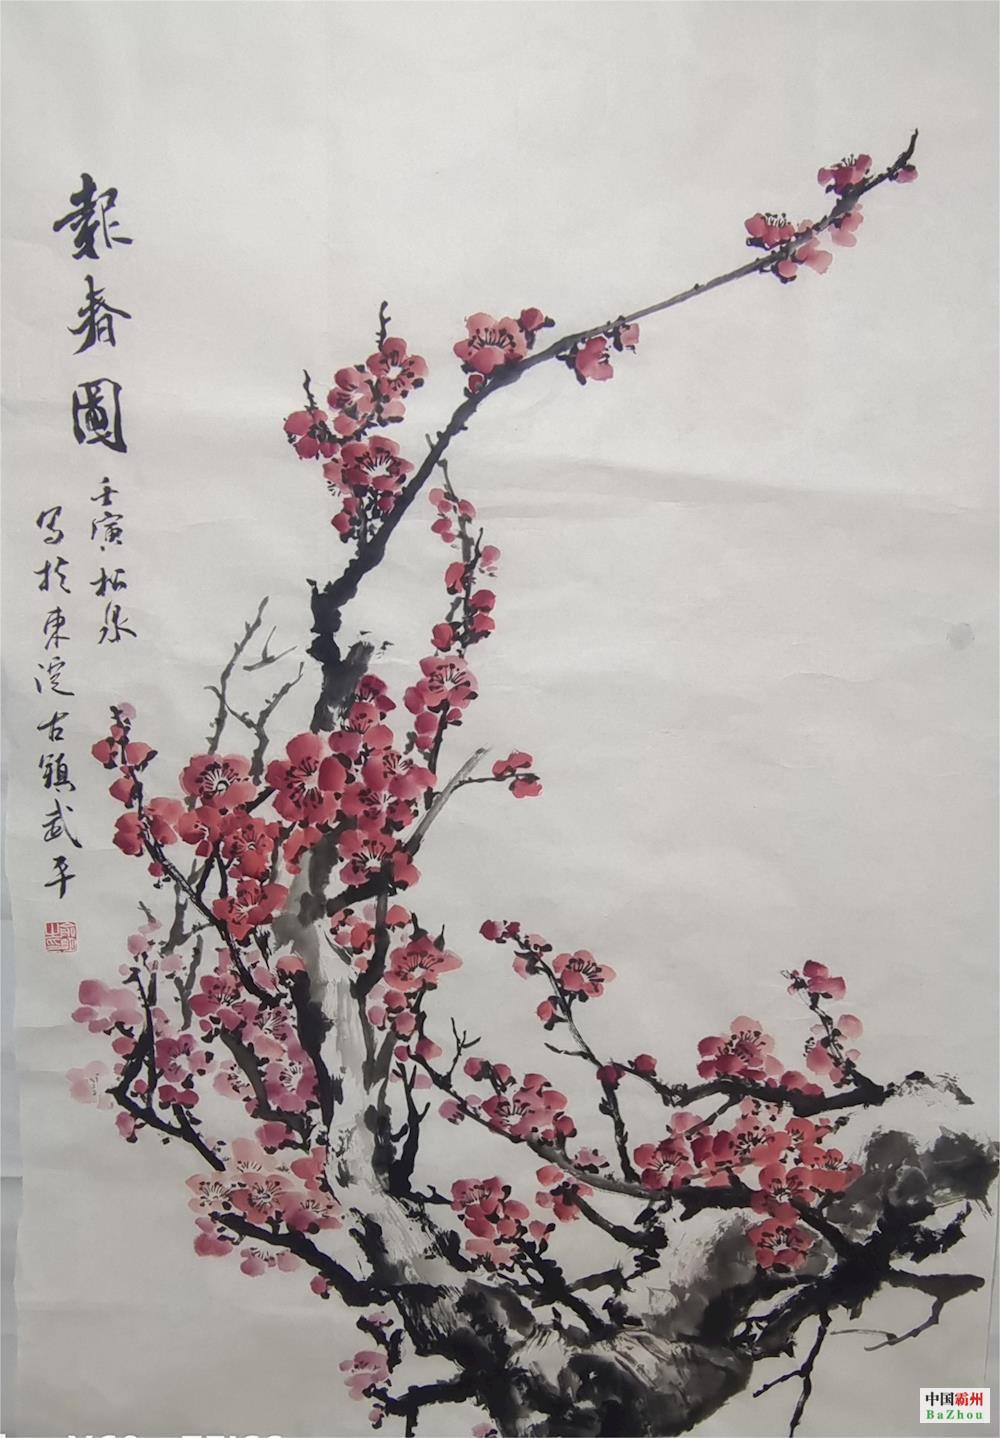 報春圖
壬寅松泉
写於東淀古鎮武平
中国霸州
BaZhou